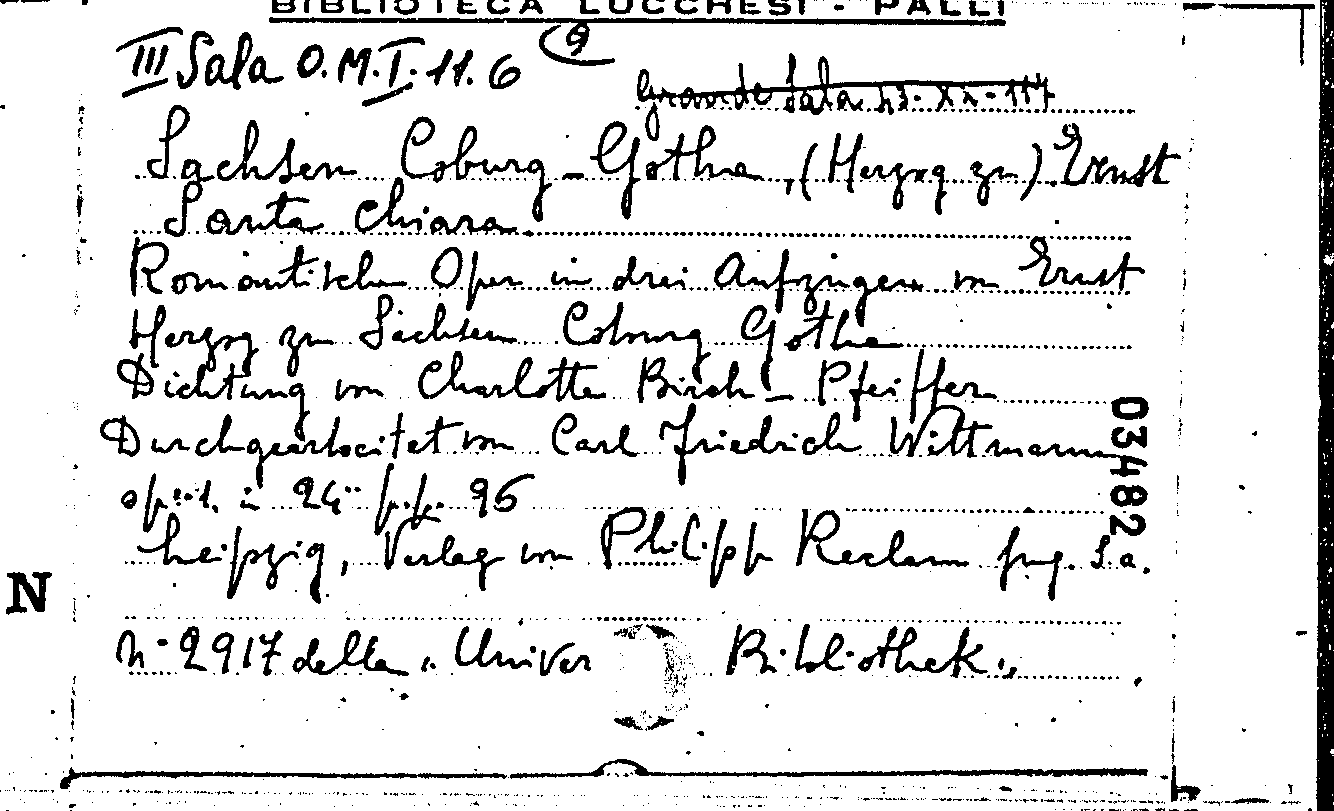 BIBLIOTECA LUCCHESI - PALLI
III Sala O.M.I.11.6 (9
Grande Sala 23-XX-117
Sachsen Coburg-Gotha, (Herzog zu) Ernst
Santa Chiara.
Romantische Oper in drei Aufzügen von Ernst
Herzog zu Sachsen Coburg Gotha
Dichtung von Charlotte Birch-Pfeiffer
Durchgearbeitet von Carl Friedrich Wittmann
opusc. in 24° pp. 96
Leipzig, Verlag von Philipp Reclam jug. S.a.
N° 2917 della "Univer Bibliothek"
03482
N